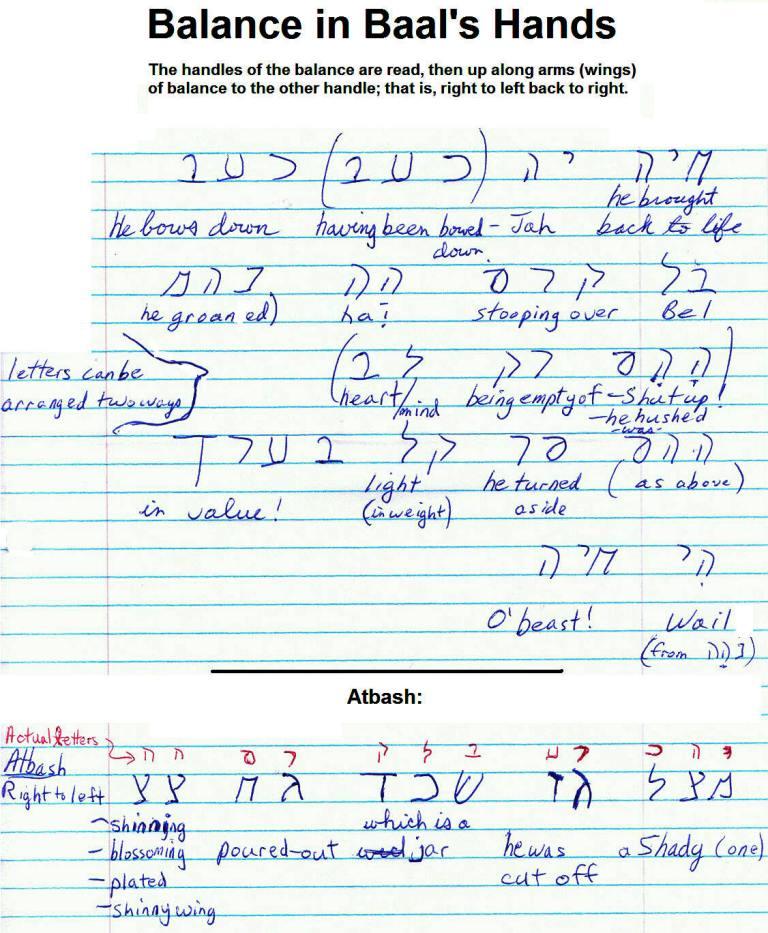 Balance in Baal's Hands
The handles of the balance are read, then up along arms (wings)
of balance to the other handle; that is, right to left back to right.
חיה יה (כעב) כעב
he brought
He bows down having been bowed- Jah back to life
down.
בל קרס הה נהמ
he groaned) ha! stooping over Bel
letters can be
arranged two ways
(ההס רק לב
(heart/mind being empty of - Shut up!
- he hushed
- was -
ההס סר קל בערך
in value! light he turned (as above)
(in weight) aside
הי חיה
O' beast! Wail
(from נהה)
Atbash:
Actual letters
ה ה ס ר ק ל ב ע ר כ ה י
Atbash
Right to left
מצל גז שכד גח צצ
- shinning which is a
- blossoming poured-out jar he was a Shady (one)
- plated cut off
- shinny wing